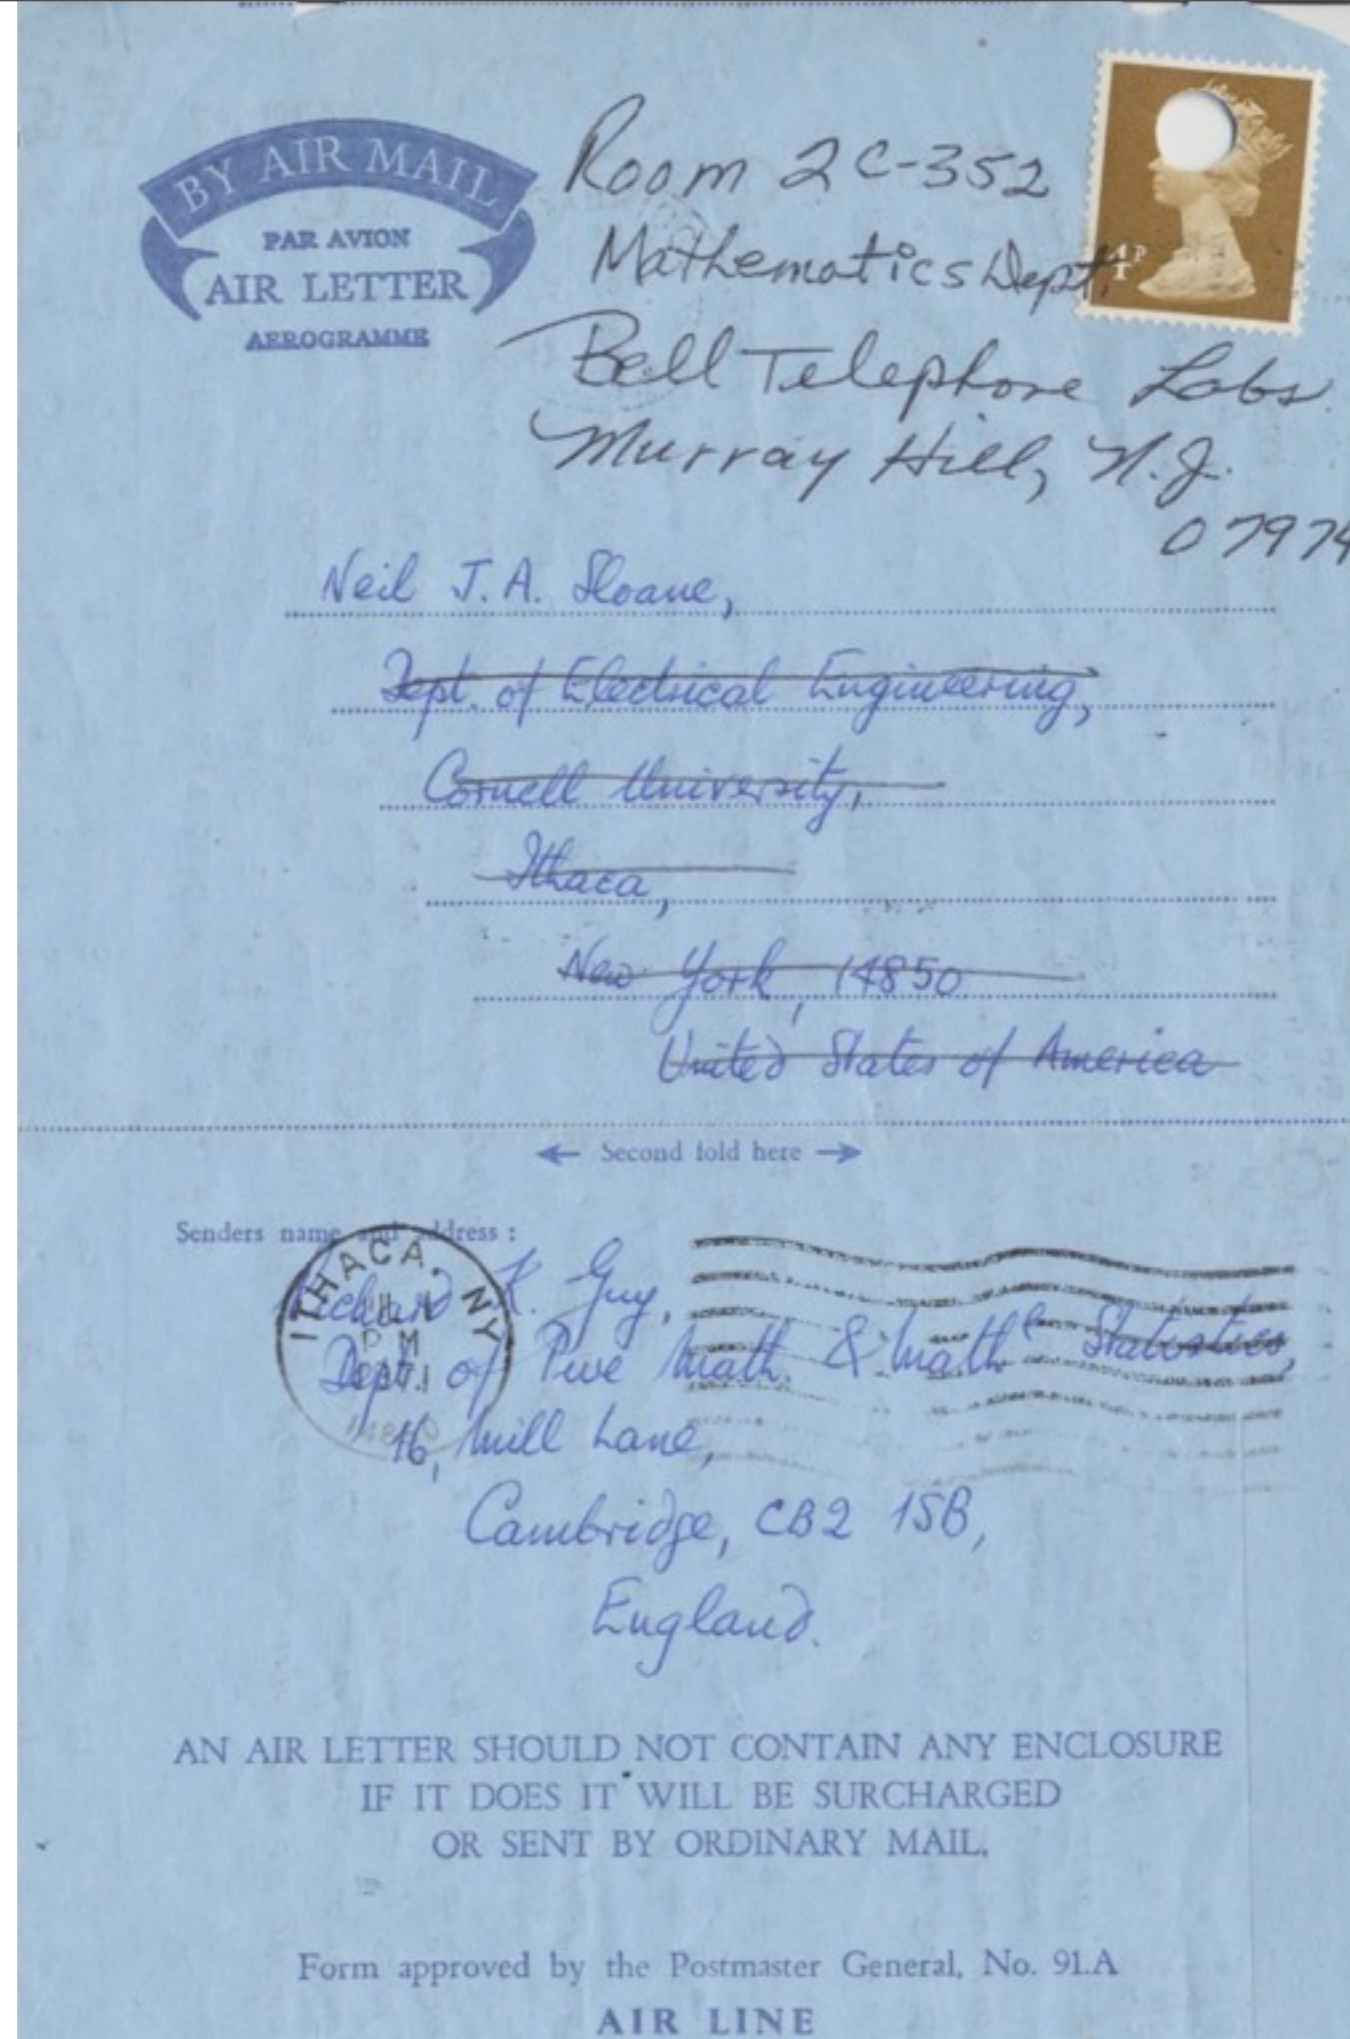 BY AIR MAIL
PAR AVION
AIR LETTER
AEROGRAMME
Room 2C-352
Mathematics Dept.
4P
Bell Telephone Labs
Murray Hill, N.J.
07974
Neil J.A. Sloane,
Dept. of Electrical Engineering,
Cornell University,
Ithaca,
New York, 14850
United States of America
← Second fold here →
Senders name and address :
ITHACA, NY
PM
Richard K. Guy,
Dept. of Pure Math. & Mathˡ Statistics,
16, Mill Lane,
Cambridge, CB2 1SB,
England.
AN AIR LETTER SHOULD NOT CONTAIN ANY ENCLOSURE
IF IT DOES IT WILL BE SURCHARGED
OR SENT BY ORDINARY MAIL.
Form approved by the Postmaster General, No. 91.A
AIR LINE